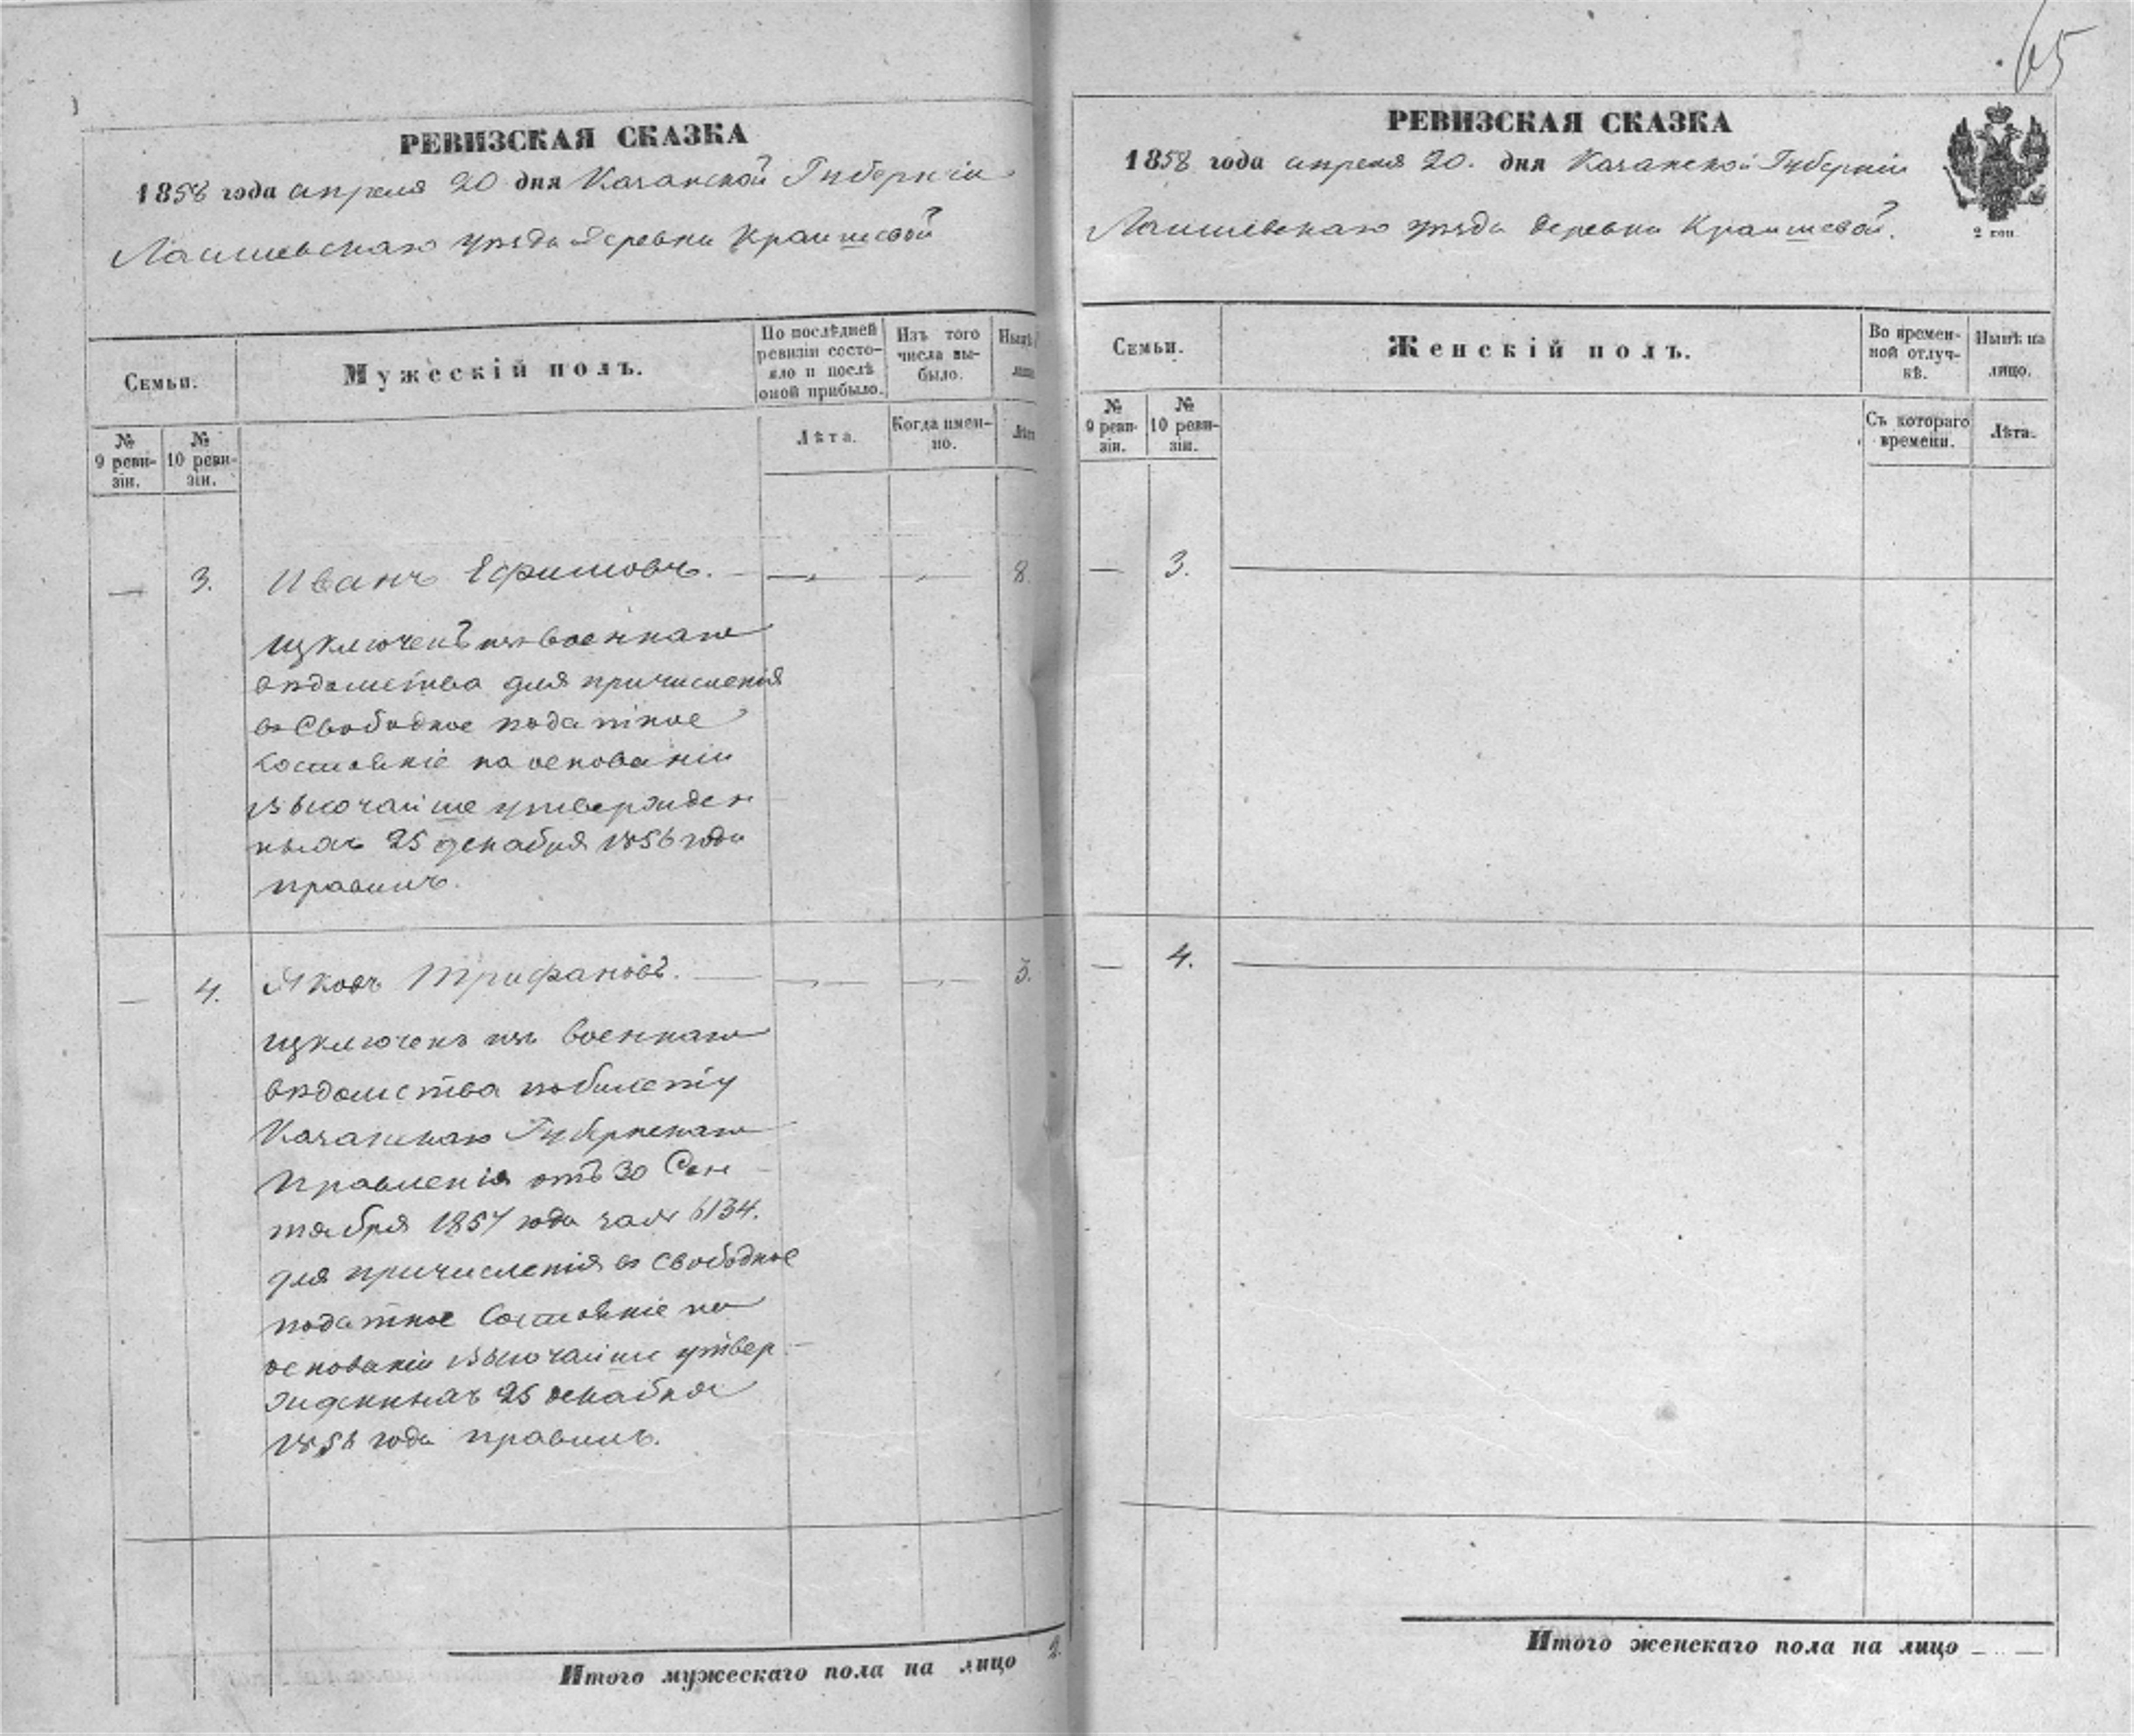 65
РЕВИЗСКАЯ СКАЗКА
1858 года апреля 20 дня Казанской Губернiи
Лаишевскаго уѣзда деревни Краишевой
Семьи.
Мужескiй полъ.
По послѣдней ревизiи состояло и послѣ оной прибыло.
Изъ того числа выбыло.
Нынѣ
Лѣта.
Когда именно.
Лѣт
№ 9 ревизiи.
№ 10 ревизiи.
— 3. Иванъ Ефимовъ. — — — 8.
изключенъ изъ военнаго
вѣдомства для причисленiя
въ Свободное податное
состоянiе на основанiи
Высочайше утвержден
ныхъ 25 декабря 1856 года
правилъ.
— 4. Яковъ Трифановъ. — — — 3.
изключенъ изъ военнаго
вѣдомства по билету
Казанскаго Губернскаго
Правленiя отъ 30 Сен
тября 1857 года за № 6134.
для причисленiя въ свободное
податное Состоянiе на
основанiи Высочайше утвер
жденныхъ 25 декабря
1856 года правилъ.
Итого мужескаго пола на лицо 2.
РЕВИЗСКАЯ СКАЗКА
1858 года апреля 20. дня Казанской Губернiи
Лаишевскаго уѣзда деревни Краишевой.
2 коп.
Семьи.
Женскiй полъ.
Во временной отлучкѣ.
Нынѣ на лицо.
№ 9 ревизiи.
№ 10 ревизiи.
Съ котораго времени.
Лѣта.
— 3.
— 4.
Итого женскаго пола на лицо — —